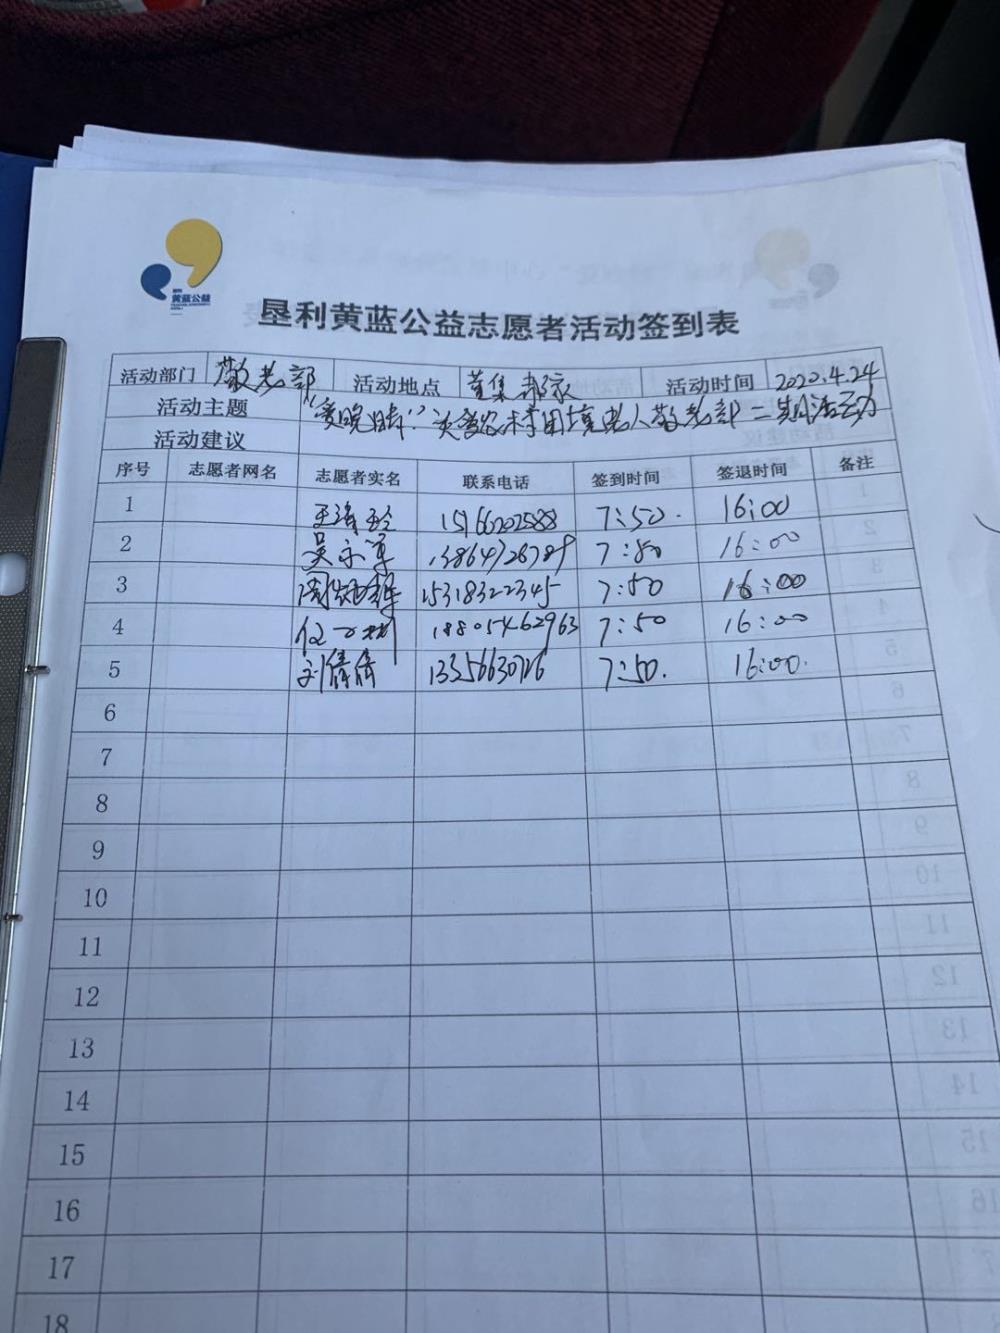 黄蓝公益
垦利黄蓝公益志愿者活动签到表
活动部门 敬老部 活动地点 董集郝家 活动时间 2020.4.24
活动主题 "爱晚晴"关爱农村困境老人敬老部二组活动
活动建议
序号 志愿者网名 志愿者实名 联系电话 签到时间 签退时间 备注
1 7:50. 16:00
2 吴永军 13864728789 7:50 16:00
3 15318322345 7:50 16:00
4 18805462963 7:50 16:00
5 刘倩倩 7:50. 16:00.
6
7
8
9
10
11
12
13
14
15
16
17
18